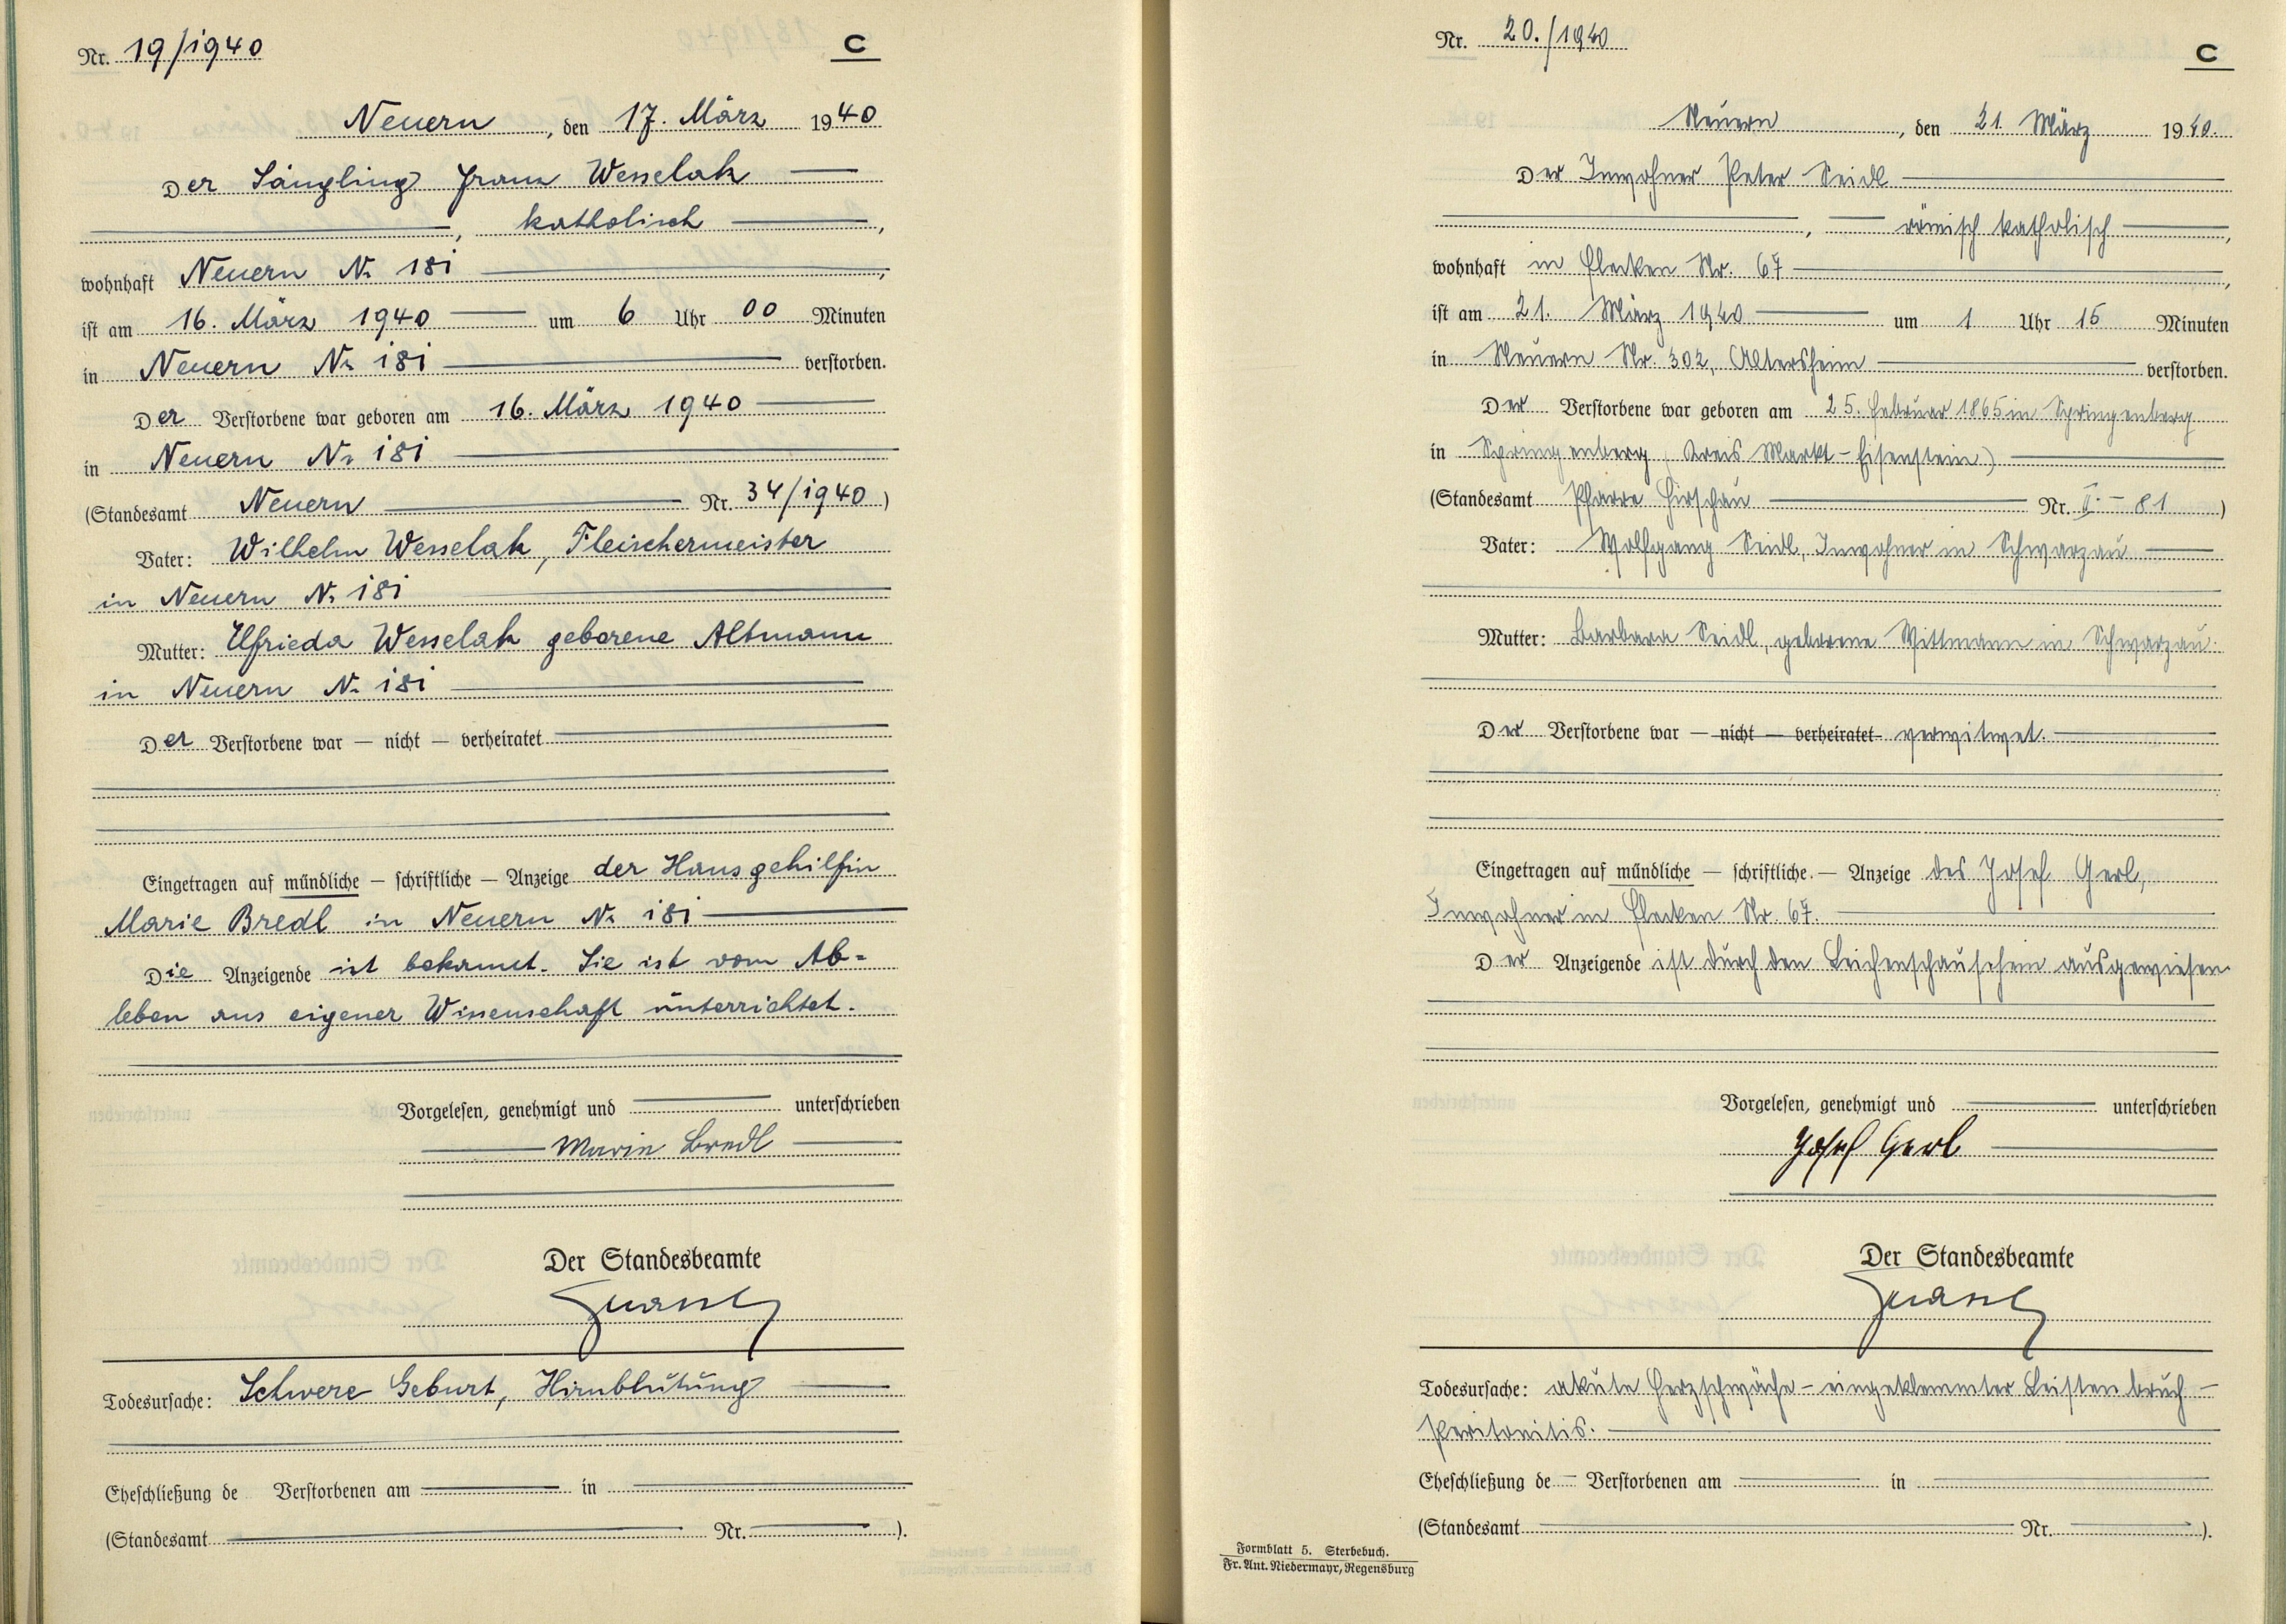 Nr. 19/1940
C
Neuern, den 17. März 1940
Der Säugling Franz Wesselak
, katholisch,
wohnhaft Neuern Nr 181,
ist am 16. März 1940 um 6 Uhr 00 Minuten
in Neuern Nr 181 verstorben.
Der Verstorbene war geboren am 16. März 1940
in Neuern Nr 181
(Standesamt Neuern Nr. 34/1940)
Vater: Wilhelm Wesselak, Fleischermeister
in Neuern Nr 181
Mutter: Elfrieda Wesselak geborene Altmann
in Neuern Nr 181
Der Verstorbene war — nicht — verheiratet
Eingetragen auf mündliche — schriftliche — Anzeige der Hausgehilfin
Marie Bredl in Neuern Nr 181
Die Anzeigende ist bekannt. Sie ist vom Ab=
leben aus eigener Wissenschaft unterrichtet.
Vorgelesen, genehmigt und unterschrieben
Marie Bredl
Der Standesbeamte
Todesursache: Schwere Geburt, Hirnblutung
Eheschließung de Verstorbenen am in
(Standesamt Nr. ).
Nr. 20./1940
C
Neuern, den 21. März 1940.
Der Inwohner Peter Seidl
, römisch katholisch,
wohnhaft in Flecken Nr. 67,
ist am 21. März 1940 um 1 Uhr 15 Minuten
in Neuern Nr. 302, Altersheim verstorben.
Der Verstorbene war geboren am 25. Februar 1865 in Springenberg
in Springenberg (Kreis Markt-Eisenstein)
(Standesamt Pfarre Hirschau Nr. II.- 81)
Vater: Wolfgang Seidl, Inwohner in Schwarzau
Mutter: Barbara Seidl, geborene Wittmann in Schwarzau.
Der Verstorbene war — nicht — verheiratet verwitwet.
Eingetragen auf mündliche — schriftliche. — Anzeige des Josef Gerl,
Inwohner in Flecken Nr. 67.
Der Anzeigende ist durch den Leichenschauschein ausgewiesen.
Vorgelesen, genehmigt und unterschrieben
Josef Gerl
Der Standesbeamte
Todesursache: akute Herzschwäche - eingeklemmter Leistenbruch -
Peritonitis.
Eheschließung de Verstorbenen am in
(Standesamt Nr. ).
Formblatt 5. Sterbebuch.
Fr. Ant. Niedermayr, Regensburg